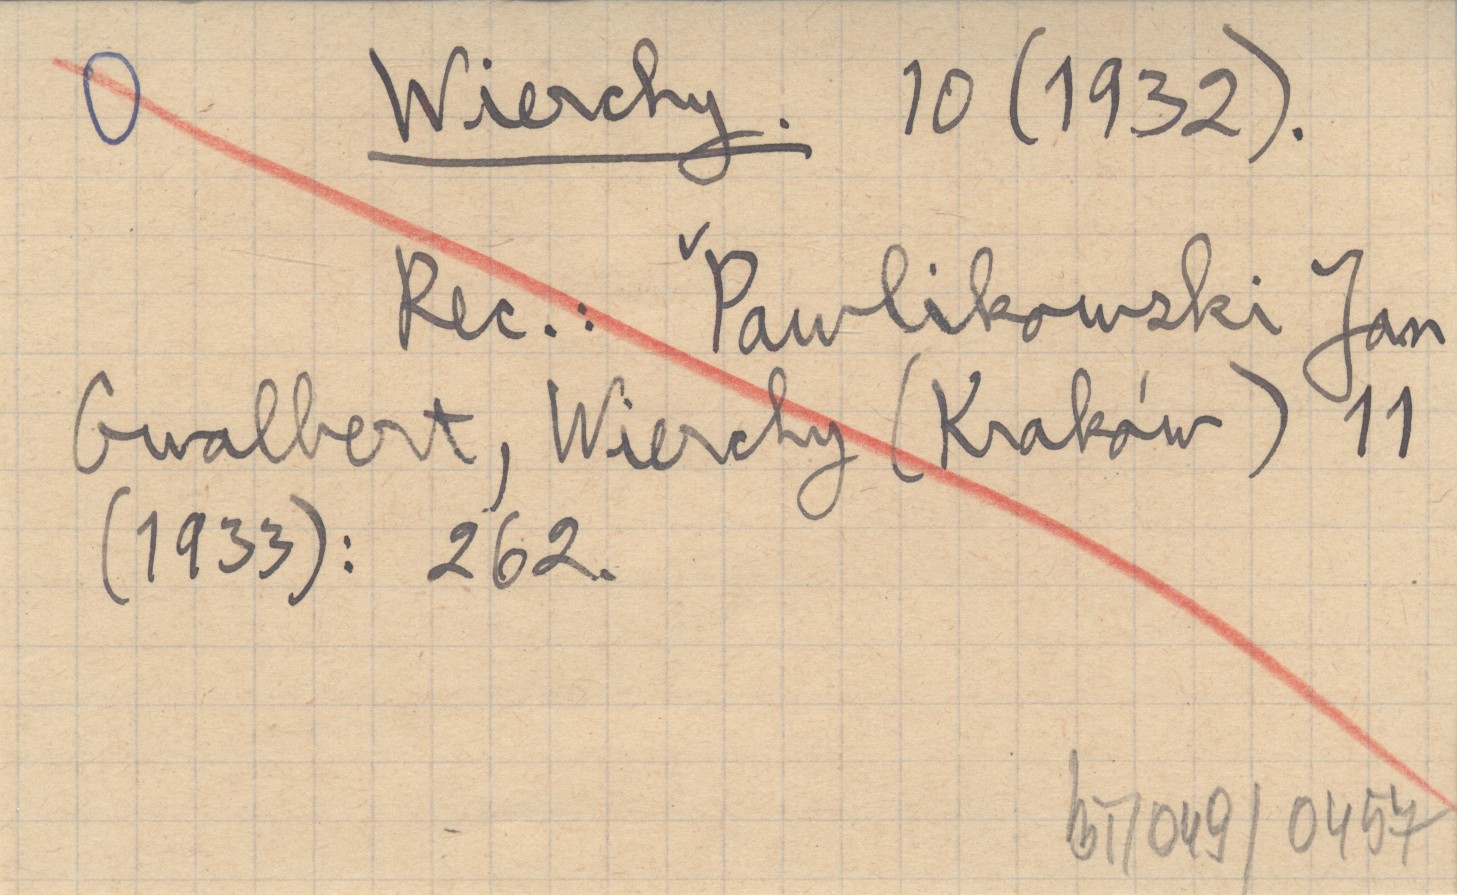 0 Wierchy. 10 (1932).
Rec.: ˇPawlikowski Jan
Gwalbert, Wierchy (Kraków) 11
(1933): 262.
049 / 0457